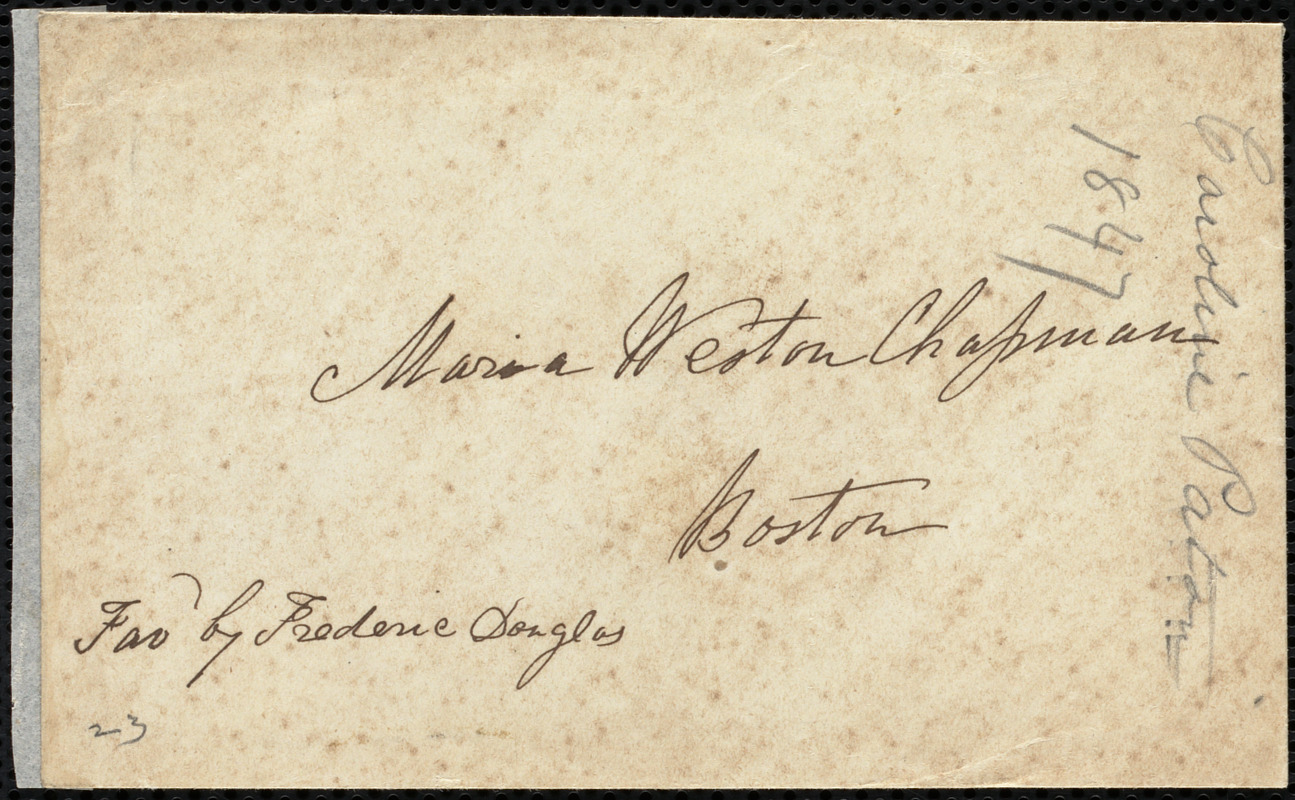 Maria Weston Chapman
Boston
Fav by Frederic Douglas
23
1847
Caroline